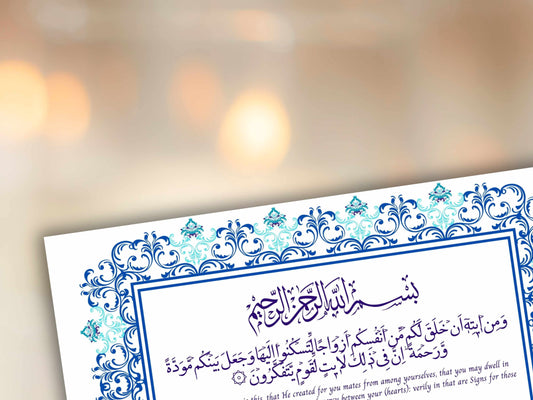 بسم الله الرحمن الرحيم
وَمِنْ اٰيٰتِهٖ اَنْ خَلَقَ لَكُمْ مِّنْ اَنْفُسِكُمْ اَزْوَاجًا لِّتَسْكُنُوْا اِلَيْهَا وَجَعَلَ بَيْنَكُمْ مَّوَدَّةً
وَّرَحْمَةً اِنَّ فِىْ ذٰلِكَ لَاٰيٰتٍ لِّقَوْمٍ يَّتَفَكَّرُوْنَ
this, that He created for you mates from among yourselves, that you may dwell in
between your (hearts): verily in that are Signs for those